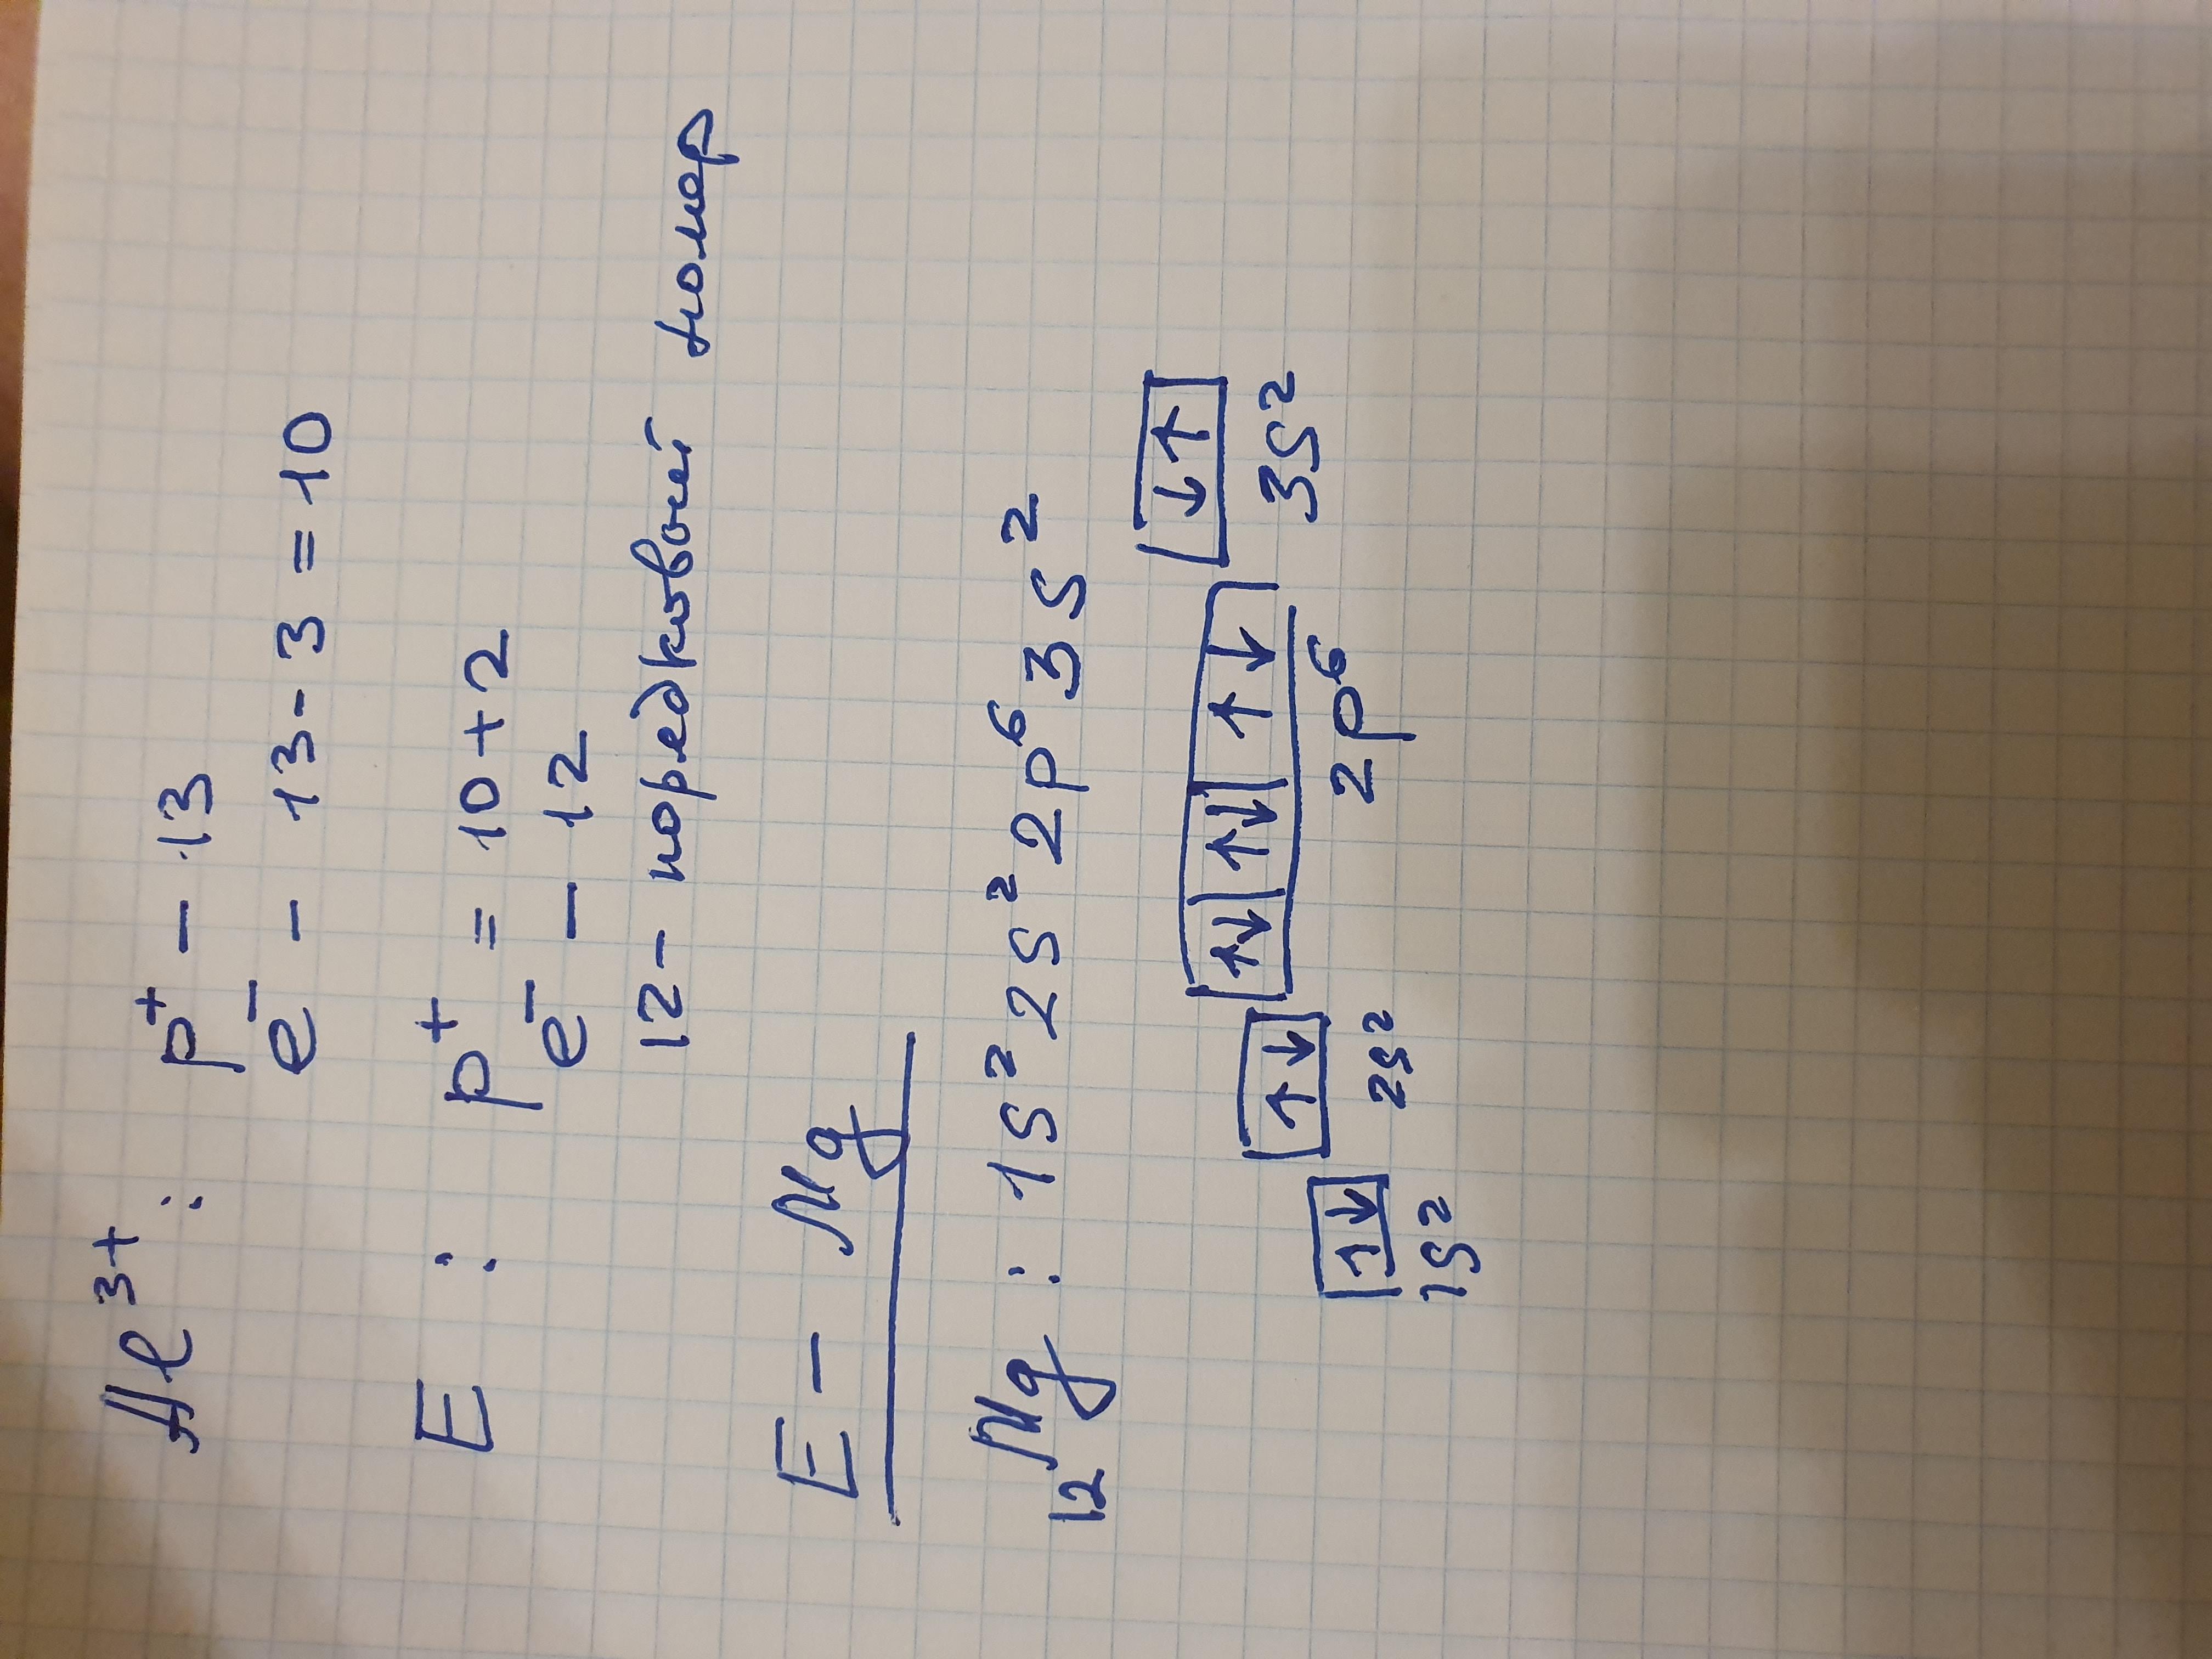 Al³⁺ : p⁺ – 13
e⁻ – 13 - 3 = 10
E : p⁺ = 10 + 2
e⁻ – 12
12 – поредковый номер
E – Mg
₁₂Mg : 1s² 2s² 2p⁶ 3s²
↑↓ ↑↓ ↑↓ ↑↓ ↑↓ ↓↑
1s² 2s² 2p⁶ 3s²